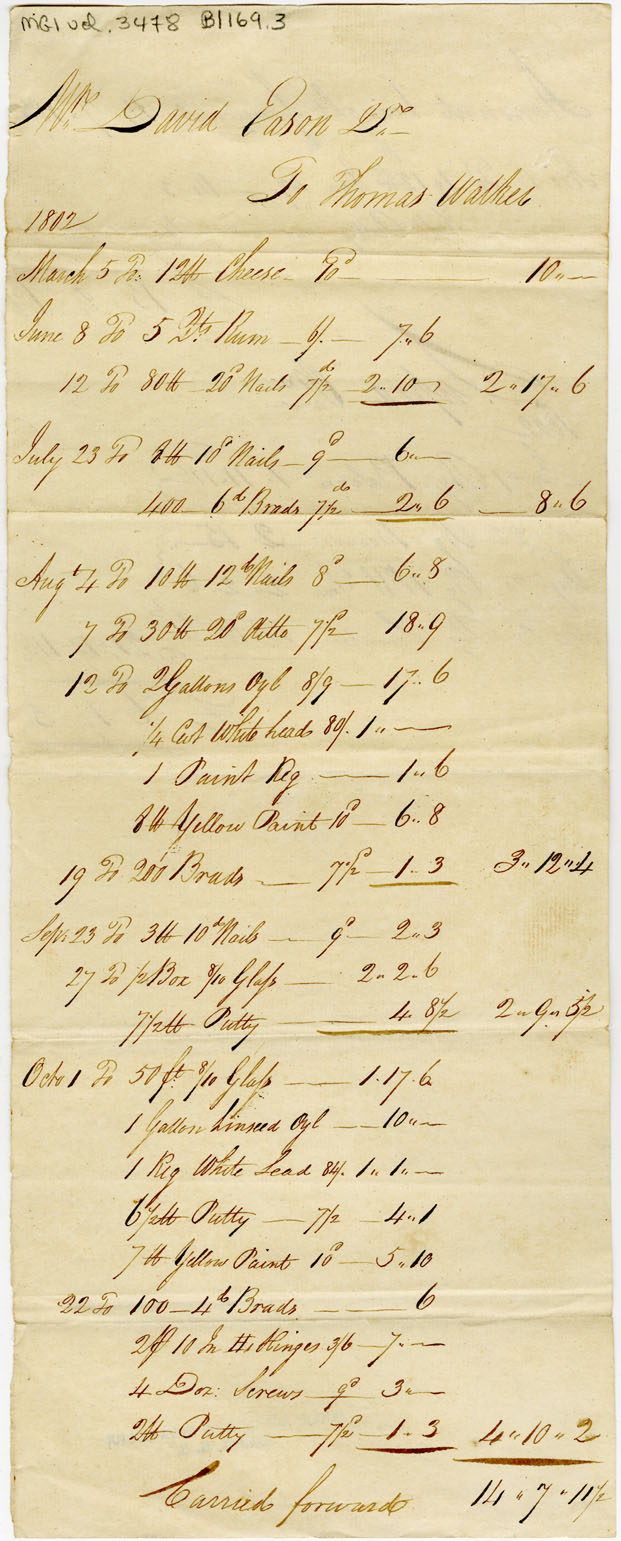 MG1 vol. 3478 B1169.3
Mr. David Eason Dr.
To Thomas Walker
1802
March 5 To: 12 lb Cheese 10d — 10 „ —
June 8 To 5 Pts Rum — 1/6 — 7 „ 6
12 To 80 lb — 20d Nails 7½d 2 „ 10 „ 2 „ 17 „ 6
July 23 To 8 lb 10d Nails — 9d — 6 „ —
400 — 6d Brads 7½d — 2 „ 6 — 8 „ 6
Augt 4 To 10 lb 12d Nails 8d — 6 „ 8
7 To 30 lb 20d Ditto 7½d 18 „ 9
12 To 2 Gallons Oyl 8/9 — 17 „ 6
¼ Cwt White Lead 80/. 1 „ —
1 Paint Keg — 1 „ 6
8 lb Yellow Paint 10d — 6 „ 8
19 To 200 Brads — 7½d — 1 „ 3 3 „ 12 „ 4
Sep: 23 To 3 lb 10d Nails — 9d — 2 „ 3
27 To ½ Box 8/10 Glass — 2 „ 2 „ 6
7½ lb Putty — 4 „ 8½ 2 „ 9 „ 5½
Octo 1 To 50 ft. 8/10 Glass — 1 . 17 . 6
1 Gallon Linseed Oyl — 10 „ —
1 Keg White Lead 84/. 1 „ 1 „ —
6½ lb Putty — 7½ — 4 „ 1
7 lb Yellow Paint 10d — 5 „ 10
22 To 100 — 4d Brads — — 6
2 pr 10 In H Hinges 3/6 — 7 „ —
4 Doz: Screws — 9d 3 „ —
2 lb Putty — 7½d — 1 „ 3 4 „ 10 „ 2
Carried forward 14 „ 7 „ 11½